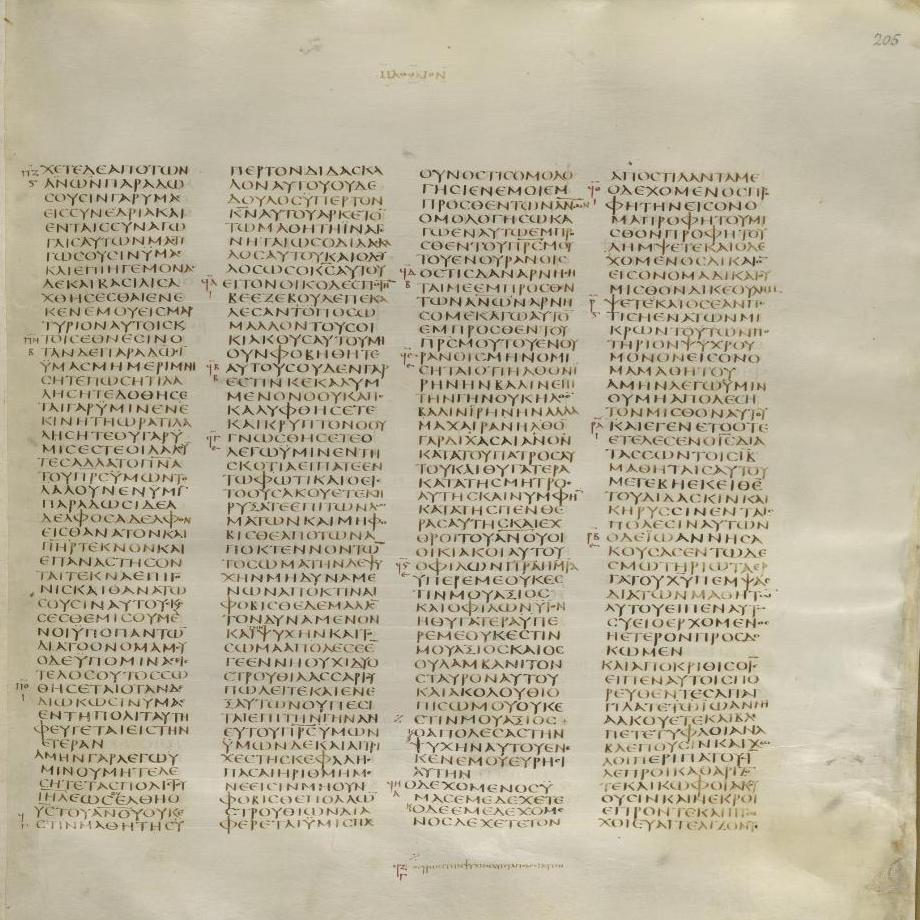 205
ΧΕΤΕΔΕΑΠΟΤΩΝ
ΑΝΩΝΠΑΡΑΔΩ
ϹΟΥϹΙΝΓΑΡΥΜΑϹ
ΕΙϹϹΥΝΕΔΡΙΑΚΑΙ
ΕΝΤΑΙϹϹΥΝΑΓΩ
ΓΑΙϹΑΥΤΩΝΜΑϹΤΙ
ΓΩϹΟΥϹΙΝΥΜΑϹ
ΚΑΙΕΠΙΗΓΕΜΟΝΑϹ
ΔΕΚΑΙΒΑϹΙΛΕΙϹΑ
ΧΘΗϹΕϹΘΑΙΕΝΕ
ΚΕΝΕΜΟΥΕΙϹΜΑΡ
ΤΥΡΙΟΝΑΥΤΟΙϹΚ
ΤΟΙϹΕΘΝΕϹΙΝΟ
ΤΑΝΔΕΠΑΡΑΔΩϹΙ
ΥΜΑϹΜΗΜΕΡΙΜΝΗ
ϹΗΤΕΠΩϹΗΤΙΛΑ
ΛΗϹΗΤΕΔΟΘΗϹΕ
ΤΑΙΓΑΡΥΜΙΝΕΝΕ
ΚΙΝΗΤΗΩΡΑΤΙΛΑ
ΛΗϹΗΤΕΟΥΓΑΡΥ
ΜΙϹΕϹΤΕΟΙΛΑΛΟΥ
ΤΕϹΑΛΛΑΤΟΠΝΑ
ΤΟΥΠΡϹΥΜΩΝΤΟ
ΛΑΛΟΥΝΕΝΥΜΙ
ΠΑΡΑΔΩϹΙΔΕΑ
ΔΕΛΦΟϹΑΔΕΛΦΟΝ
ΕΙϹΘΑΝΑΤΟΝΚΑΙ
ΠΗΡΤΕΚΝΟΝΚΑΙ
ΕΠΑΝΑϹΤΗϹΟΝ
ΤΑΙΤΕΚΝΑΕΠΙΓΟ
ΝΙϹΚΑΙΘΑΝΑΤΩ
ϹΟΥϹΙΝΑΥΤΟΥϹΚΕ
ϹΕϹΘΕΜΙϹΟΥΜΕ
ΝΟΙΥΠΟΠΑΝΤΩ
ΔΙΑΤΟΟΝΟΜΑΜΟΥ
ΟΔΕΥΠΟΜΙΝΑϹΕΙϹ
ΤΕΛΟϹΟΥΤΟϹϹΩ
ΘΗϹΕΤΑΙΟΤΑΝΔΕ
ΔΙΩΚΩϹΙΝΥΜΑϹ
ΕΝΤΗΠΟΛΙΤΑΥΤΗ
ΦΕΥΓΕΤΑΙΕΙϹΤΗΝ
ΕΤΕΡΑΝ
ΑΜΗΝΓΑΡΛΕΓΩΥ
ΜΙΝΟΥΜΗΤΕΛΕ
ϹΗΤΕΤΑϹΠΟΛΙϹΤΟΥ
ΙΗΛΕΩϹΕΛΘΗΟ
ΥϹΤΟΥΑΝΟΥΟΥΚΕ
ϹΤΙΝΜΑΘΗΤΗϹΥ
ΠΕΡΤΟΝΔΙΔΑϹΚΑ
ΛΟΝΑΥΤΟΥΟΥΔΕ
ΔΟΥΛΟϹΥΠΕΡΤΟΝ
ΚΝΑΥΤΟΥΑΡΚΕΤΟ
ΤΩΜΑΘΗΤΗΙΝΑΓΕ
ΝΗΤΑΙΩϹΟΔΙΔΑϹΚΑ
ΛΟϹΑΥΤΟΥΚΑΙΟΔΟΥ
ΛΟϹΩϹΟΚϹΑΥΤΟΥ
ΕΙΤΟΝΟΙΚΟΔΕϹΠΟΤΗ
ΒΕΕΖΕΒΟΥΛΕΠΕΚΑ
ΛΕϹΑΝΤΟΠΟϹΩ
ΜΑΛΛΟΝΤΟΥϹΟΙ
ΚΙΑΚΟΥϹΑΥΤΟΥΜΗ
ΟΥΝΦΟΒΗΘΗΤΕ
ΑΥΤΟΥϹΟΥΔΕΝΓΑΡ
ΕϹΤΙΝΚΕΚΑΛΥΜ
ΜΕΝΟΝΟΟΥΚΑΠΟ
ΚΑΛΥΦΘΗϹΕΤΕ
ΚΑΙΚΡΥΠΤΟΝΟΟΥ
ΓΝΩϹΘΗϹΕΤΕΟ
ΛΕΓΩΥΜΙΝΕΝΤΗ
ϹΚΟΤΙΑΕΙΠΑΤΕΕΝ
ΤΩΦΩΤΙΚΑΙΟΕΙϹ
ΤΟΟΥϹΑΚΟΥΕΤΕΚΗ
ΡΥΞΑΤΕΕΠΙΤΩΝΔΩ
ΜΑΤΩΝΚΑΙΜΗΦΟ
ΒΙϹΘΕΑΠΟΤΩΝΑ
ΠΟΚΤΕΝΝΟΝΤΩ
ΤΟϹΩΜΑΤΗΝΔΕΨΥ
ΧΗΝΜΗΔΥΝΑΜΕ
ΝΩΝΑΠΟΚΤΙΝΑΙ
ΦΟΒΙϹΘΕΔΕΜΑΛΛΟ
ΤΟΝΔΥΝΑΜΕΝΟΝ
ΚΑΙΨΥΧΗΝΚΑΙΤΟ
ϹΩΜΑΑΠΟΛΕϹΕΕ
ΓΕΕΝΝΗΟΥΧΙΔΥΟ
ϹΤΡΟΥΘΙΑΑϹϹΑΡΙΟΥ
ΠΩΛΕΙΤΕΚΑΙΕΝΕ
ΞΑΥΤΩΝΟΥΠΕϹΙ
ΤΑΙΕΠΙΤΗΝΓΗΝΑΝ
ΕΥΤΟΥΠΡϹΥΜΩΝ
ΥΜΩΝΔΕΚΑΙΑΙΤΡΙ
ΧΕϹΤΗϹΚΕΦΑΛΗϹ
ΠΑϹΑΙΗΡΙΘΜΗΜΕ
ΝΕΕΙϹΙΝΜΗΟΥΝ
ΦΟΒΙϹΘΕΠΟΛΛΩ
ϹΤΡΟΥΘΙΩΝΔΙΑ
ΦΕΡΕΤΑΙΥΜΙϹΠΑϹ
ΟΥΝΟϹΤΙϹΟΜΟΛΟ
ΓΗϹΙΕΝΕΜΟΙΕΜ
ΠΡΟϹΘΕΝΤΩΝΑΝΩΝ
ΟΜΟΛΟΓΗϹΩΚΑ
ΓΩΕΝΑΥΤΩΕΜΠΡΟ
ϹΘΕΝΤΟΥΠΡϹΜΟΥ
ΤΟΥΕΝΟΥΡΑΝΟΙϹ
ΟϹΤΙϹΔΑΝΑΡΝΗϹΗ
ΤΑΙΜΕΕΜΠΡΟϹΘΝ
ΤΩΝΑΝΩΝΑΡΝΗ
ϹΟΜΕΚΑΓΩΑΥΤΟ
ΕΜΠΡΟϹΘΕΝΤΟΥ
ΠΡϹΜΟΥΤΟΥΕΝΟΥ
ΡΑΝΟΙϹΜΗΝΟΜΙ
ϹΗΤΑΙΟΤΙΗΛΘΟΝΙ
ΡΗΝΗΝΒΑΛΙΝΕΠΙ
ΤΗΝΓΗΝΟΥΚΗΛΘΟ
ΒΑΛΙΝΙΡΗΝΗΝΑΛΛΑ
ΜΑΧΑΙΡΑΝΗΛΘΟ
ΓΑΡΔΙΧΑϹΑΙΑΝΟΝ
ΚΑΤΑΤΟΥΠΑΤΡΟϹΑΥ
ΤΟΥΚΑΙΘΥΓΑΤΕΡΑ
ΚΑΤΑΤΗϹΜΗΤΡΟϹ
ΑΥΤΗϹΚΑΙΝΥΜΦΗ
ΚΑΤΑΤΗϹΠΕΝΘΕ
ΡΑϹΑΥΤΗϹΚΑΙΕΧ
ΘΡΟΙΤΟΥΑΝΟΥΟΙ
ΟΙΚΙΑΚΟΙΑΥΤΟΥ
ΟΦΙΛΩΝΠΡΑΗΜΡΑ
ΥΠΕΡΕΜΕΟΥΚΕϹ
ΤΙΝΜΟΥΑΞΙΟϹ
ΚΑΙΟΦΙΛΩΝΥΙΟΝ
ΗΘΥΓΑΤΕΡΑΥΠΕ
ΡΕΜΕΟΥΚΕϹΤΙΝ
ΜΟΥΑΞΙΟϹΚΑΙΟϹ
ΟΥΛΑΜΒΑΝΙΤΟΝ
ϹΤΑΥΡΟΝΑΥΤΟΥ
ΚΑΙΑΚΟΛΟΥΘΙΟ
ΠΙϹΩΜΟΥΟΥΚΕ
ϹΤΙΝΜΟΥΑΞΙΟϹ
ΟΑΠΟΛΕϹΑϹΤΗΝ
ΨΥΧΗΝΑΥΤΟΥΕΝ
ΚΕΝΕΜΟΥΕΥΡΗϹΙ
ΑΥΤΗΝ
ΟΔΕΧΟΜΕΝΟϹΥ
ΜΑϹΕΜΕΔΕΧΕΤΕ
ΚΟΔΕΕΜΕΔΕΧΟΜΕ
ΝΟϹΔΕΧΕΤΕΤΟΝ
ΑΠΟϹΤΙΛΑΝΤΑΜΕ
ΟΔΕΧΟΜΕΝΟϹΠΡΟ
ΦΗΤΗΝΕΙϹΟΝΟ
ΜΑΠΡΟΦΗΤΟΥΜΙ
ϹΘΟΝΠΡΟΦΗΤΟΥ
ΛΗΜΨΕΤΕΚΑΙΟΔΕ
ΧΟΜΕΝΟϹΔΙΚΑΙΟ
ΕΙϹΟΝΟΜΑΔΙΚΑΙΟΥ
ΜΙϹΘΟΝΔΙΚΕΟΥΛΗΜ
ΨΕΤΕΚΑΙΟϹΕΑΝΠΟ
ΤΙϹΗΕΝΑΤΩΝΜΙ
ΚΡΩΝΤΟΥΤΩΝΠΟ
ΤΗΡΙΟΝΨΥΧΡΟΥ
ΜΟΝΟΝΕΙϹΟΝΟ
ΜΑΜΑΘΗΤΟΥ
ΑΜΗΝΛΕΓΩΥΜΙΝ
ΟΥΜΗΑΠΟΛΕϹΗ
ΤΟΝΜΙϹΘΟΝΑΥΤΟΥ
ΚΑΙΕΓΕΝΕΤΟΟΤΕ
ΕΤΕΛΕϹΕΝΟΙϹΔΙΑ
ΤΑϹϹΩΝΤΟΙϹΙΒ
ΜΑΘΗΤΑΙϹΑΥΤΟΥ
ΜΕΤΕΒΗΕΚΕΙΘΕ
ΤΟΥΔΙΔΑϹΚΙΝΚΑΙ
ΚΗΡΥϹϹΙΝΕΝΤΑΙϹ
ΠΟΛΕϹΙΝΑΥΤΩΝ
ΟΔΕΙΩΑΝΝΗϹΑ
ΚΟΥϹΑϹΕΝΤΩΔΕ
ϹΜΩΤΗΡΙΩΤΑΕΡ
ΓΑΤΟΥΧΥΠΕΜΨΑϹ
ΔΙΑΤΩΝΜΑΘΗΤΩ
ΑΥΤΟΥΕΙΠΕΝΑΥΤΩ
ϹΥΕΙΟΕΡΧΟΜΕΝΟϹ
ΗΕΤΕΡΟΝΠΡΟϹΔΟ
ΚΩΜΕΝ
ΚΑΙΑΠΟΚΡΙΘΙϹΟΙϹ
ΕΙΠΕΝΑΥΤΟΙϹΠΟ
ΡΕΥΘΕΝΤΕϹΑΠΑΓ
ΓΙΛΑΤΕΤΩΙΩΑΝΝΗ
ΑΑΚΟΥΕΤΕΚΑΙΒΛΕ
ΠΕΤΕΤΥΦΛΟΙΑΝΑ
ΒΛΕΠΟΥϹΙΝΚΑΙΧΩ
ΛΟΙΠΕΡΙΠΑΤΟΥϹΙ
ΛΕΠΡΟΙΚΑΘΑΡΙΖΟ
ΤΕΚΑΙΚΩΦΟΙΑΚΟΥ
ΟΥϹΙΝΚΑΙΝΕΚΡΟΙ
ΕΓΙΡΟΝΤΕΚΑΙΠΤΩ
ΧΟΙΕΥΑΓΓΕΛΙΖΟΝΤ